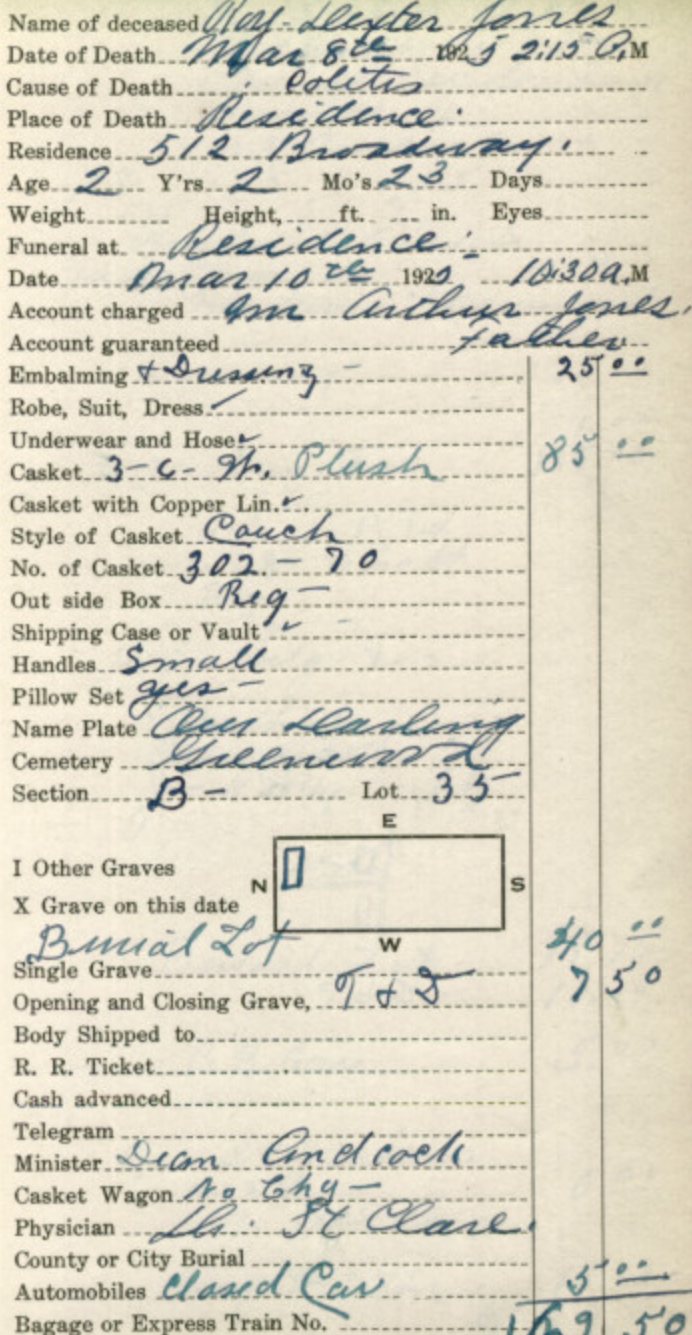 Name of deceased Roy Dexter Jones
Date of Death Mar 8th 1925 2:15 P.M
Cause of Death Colitis
Place of Death Residence
Residence 512 Broadway.
Age 2 Y'rs 2 Mo's 23 Days
Weight Height, ft. in. Eyes
Funeral at Residence
Date Mar 10th 1925 10:30 a.M
Account charged Mr Arthur Jones.
Account guaranteed Father
Embalming & Dressing - 25 00
Robe, Suit, Dress ✓
Underwear and Hose ✓
Casket 3-6- Wh. Plush 85 00
Casket with Copper Lin. ✓
Style of Casket Couch
No. of Casket 302 - 70
Out side Box Reg -
Shipping Case or Vault ✓
Handles Small
Pillow Set yes -
Name Plate Our Darling
Cemetery Greenwood
Section B - Lot 35
E
I Other Graves
N S
X Grave on this date
W
Burial Lot 40 00
Single Grave
Opening and Closing Grave, T & D 7 50
Body Shipped to
R. R. Ticket
Cash advanced
Telegram
Minister Dean
Casket Wagon No Chg -
Physician Dr. St Clare.
County or City Burial
Automobiles Closed Car 5 00
Bagage or Express Train No. 50